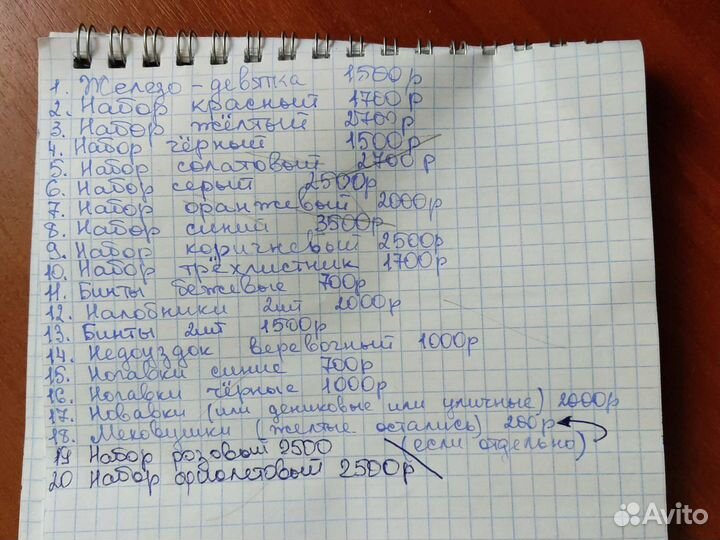 1. Железо - девятка 1500р
2. Набор красный 1700р
3. Набор жёлтый 2700р
4. Набор чёрный 1500р
5. Набор солатовый 2700р
6. Набор серый 2500р
7. Набор оранжевый 2000р
8. Набор синий 3500р
9. Набор коричневый 2500р
10. Набор трёхлистник 1700р
11. Бинты бежевые 700р
12. Налобники 2шт 2000р
13. Бинты 2шт 1500р
14. Недоуздок веревочный 1000р
15. Ногавки синие 700р
16. Ногавки чёрные 1000р
17. (или дениковые или уличные) 2000р
18. Меховушки (желтые остались) 200р
(если отдельно)
19 Набор розовый 2500
20 Набор фиолетовый 2500р
Avito